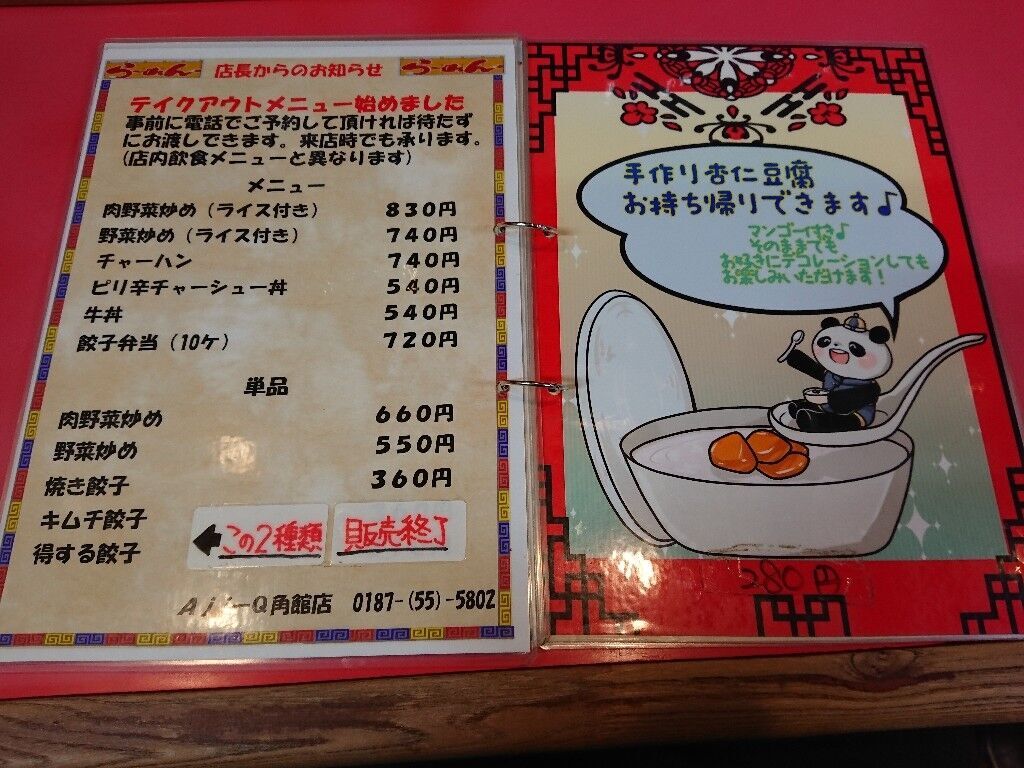 らーめん 店長からのお知らせ らーめん
テイクアウトメニュー始めました
事前に電話でご予約して頂ければ待たず
にお渡しできます。来店時でも承ります。
(店内飲食メニューと異なります)
メニュー
肉野菜炒め(ライス付き) 830円
野菜炒め(ライス付き) 740円
チャーハン 740円
ピリ辛チャーシュー丼 540円
牛丼 540円
餃子弁当(10ケ) 720円
単品
肉野菜炒め 660円
野菜炒め 550円
焼き餃子 360円
キムチ餃子
得する餃子
←この2種類 販売終了
角館店 0187-(55)-5802
手作り杏仁豆腐
お持ち帰りできます♪
マンゴー付き♪
そのままでも
お好きにデコレーションしても
お楽しみいただけます!
280円